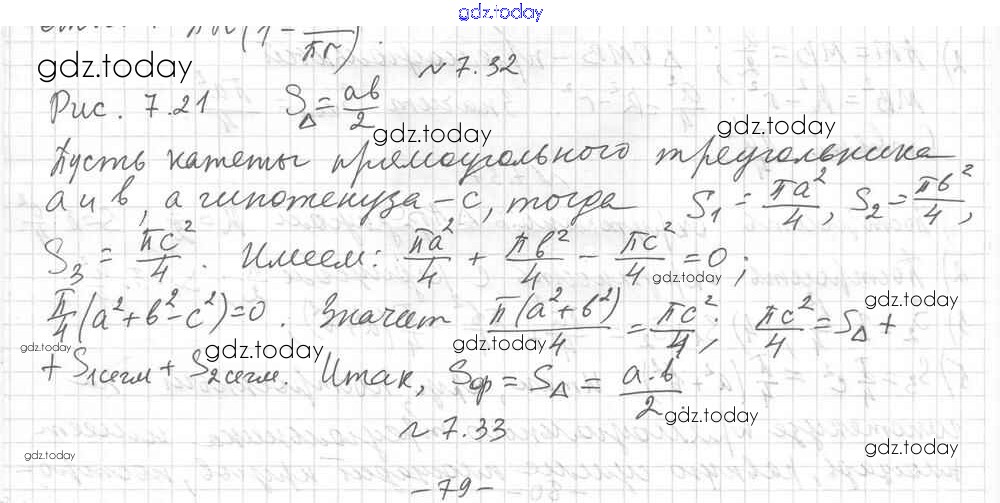 gdz.today
gdz.today
№ 7.32
Рис. 7.21 S△ = ab/2
gdz.today gdz.today
Пусть катеты прямоугольного треугольника
a и b, а гипотенуза – c, тогда S₁ = πa²/4, S₂ = πb²/4,
S₃ = πc²/4. Имеем: πa²/4 + πb²/4 – πc²/4 = 0;
gdz.today
π/4(a²+b²–c²)=0. Значит π(a²+b²)/4 = πc²/4; πc²/4 = S△ +
gdz.today
gdz.today gdz.today gdz.today
+ S₁сегм + S₂сегм. Итак, Sф = S△ = a·b/2
gdz.today
№ 7.33
gdz.today gdz.today
– 79 –